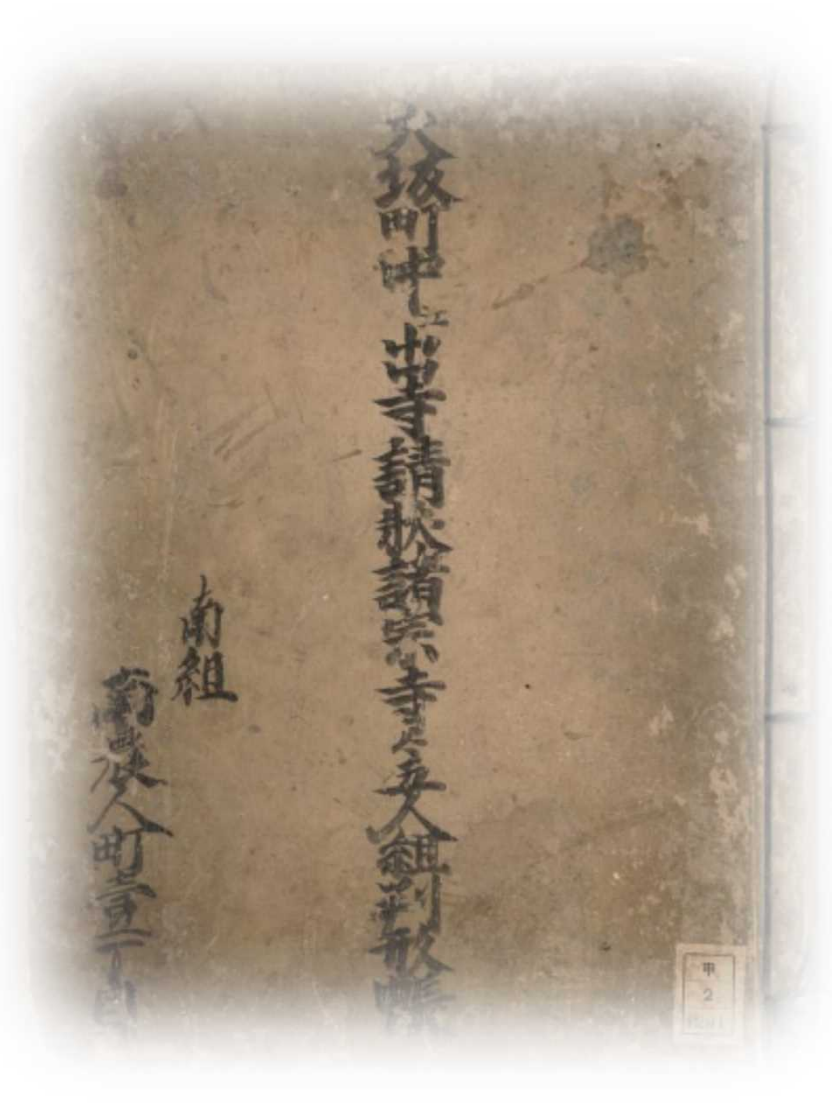 大坂町中江出寺請状諸宗寺々五人組判形帳
南組
南農人町壱丁目
甲
2